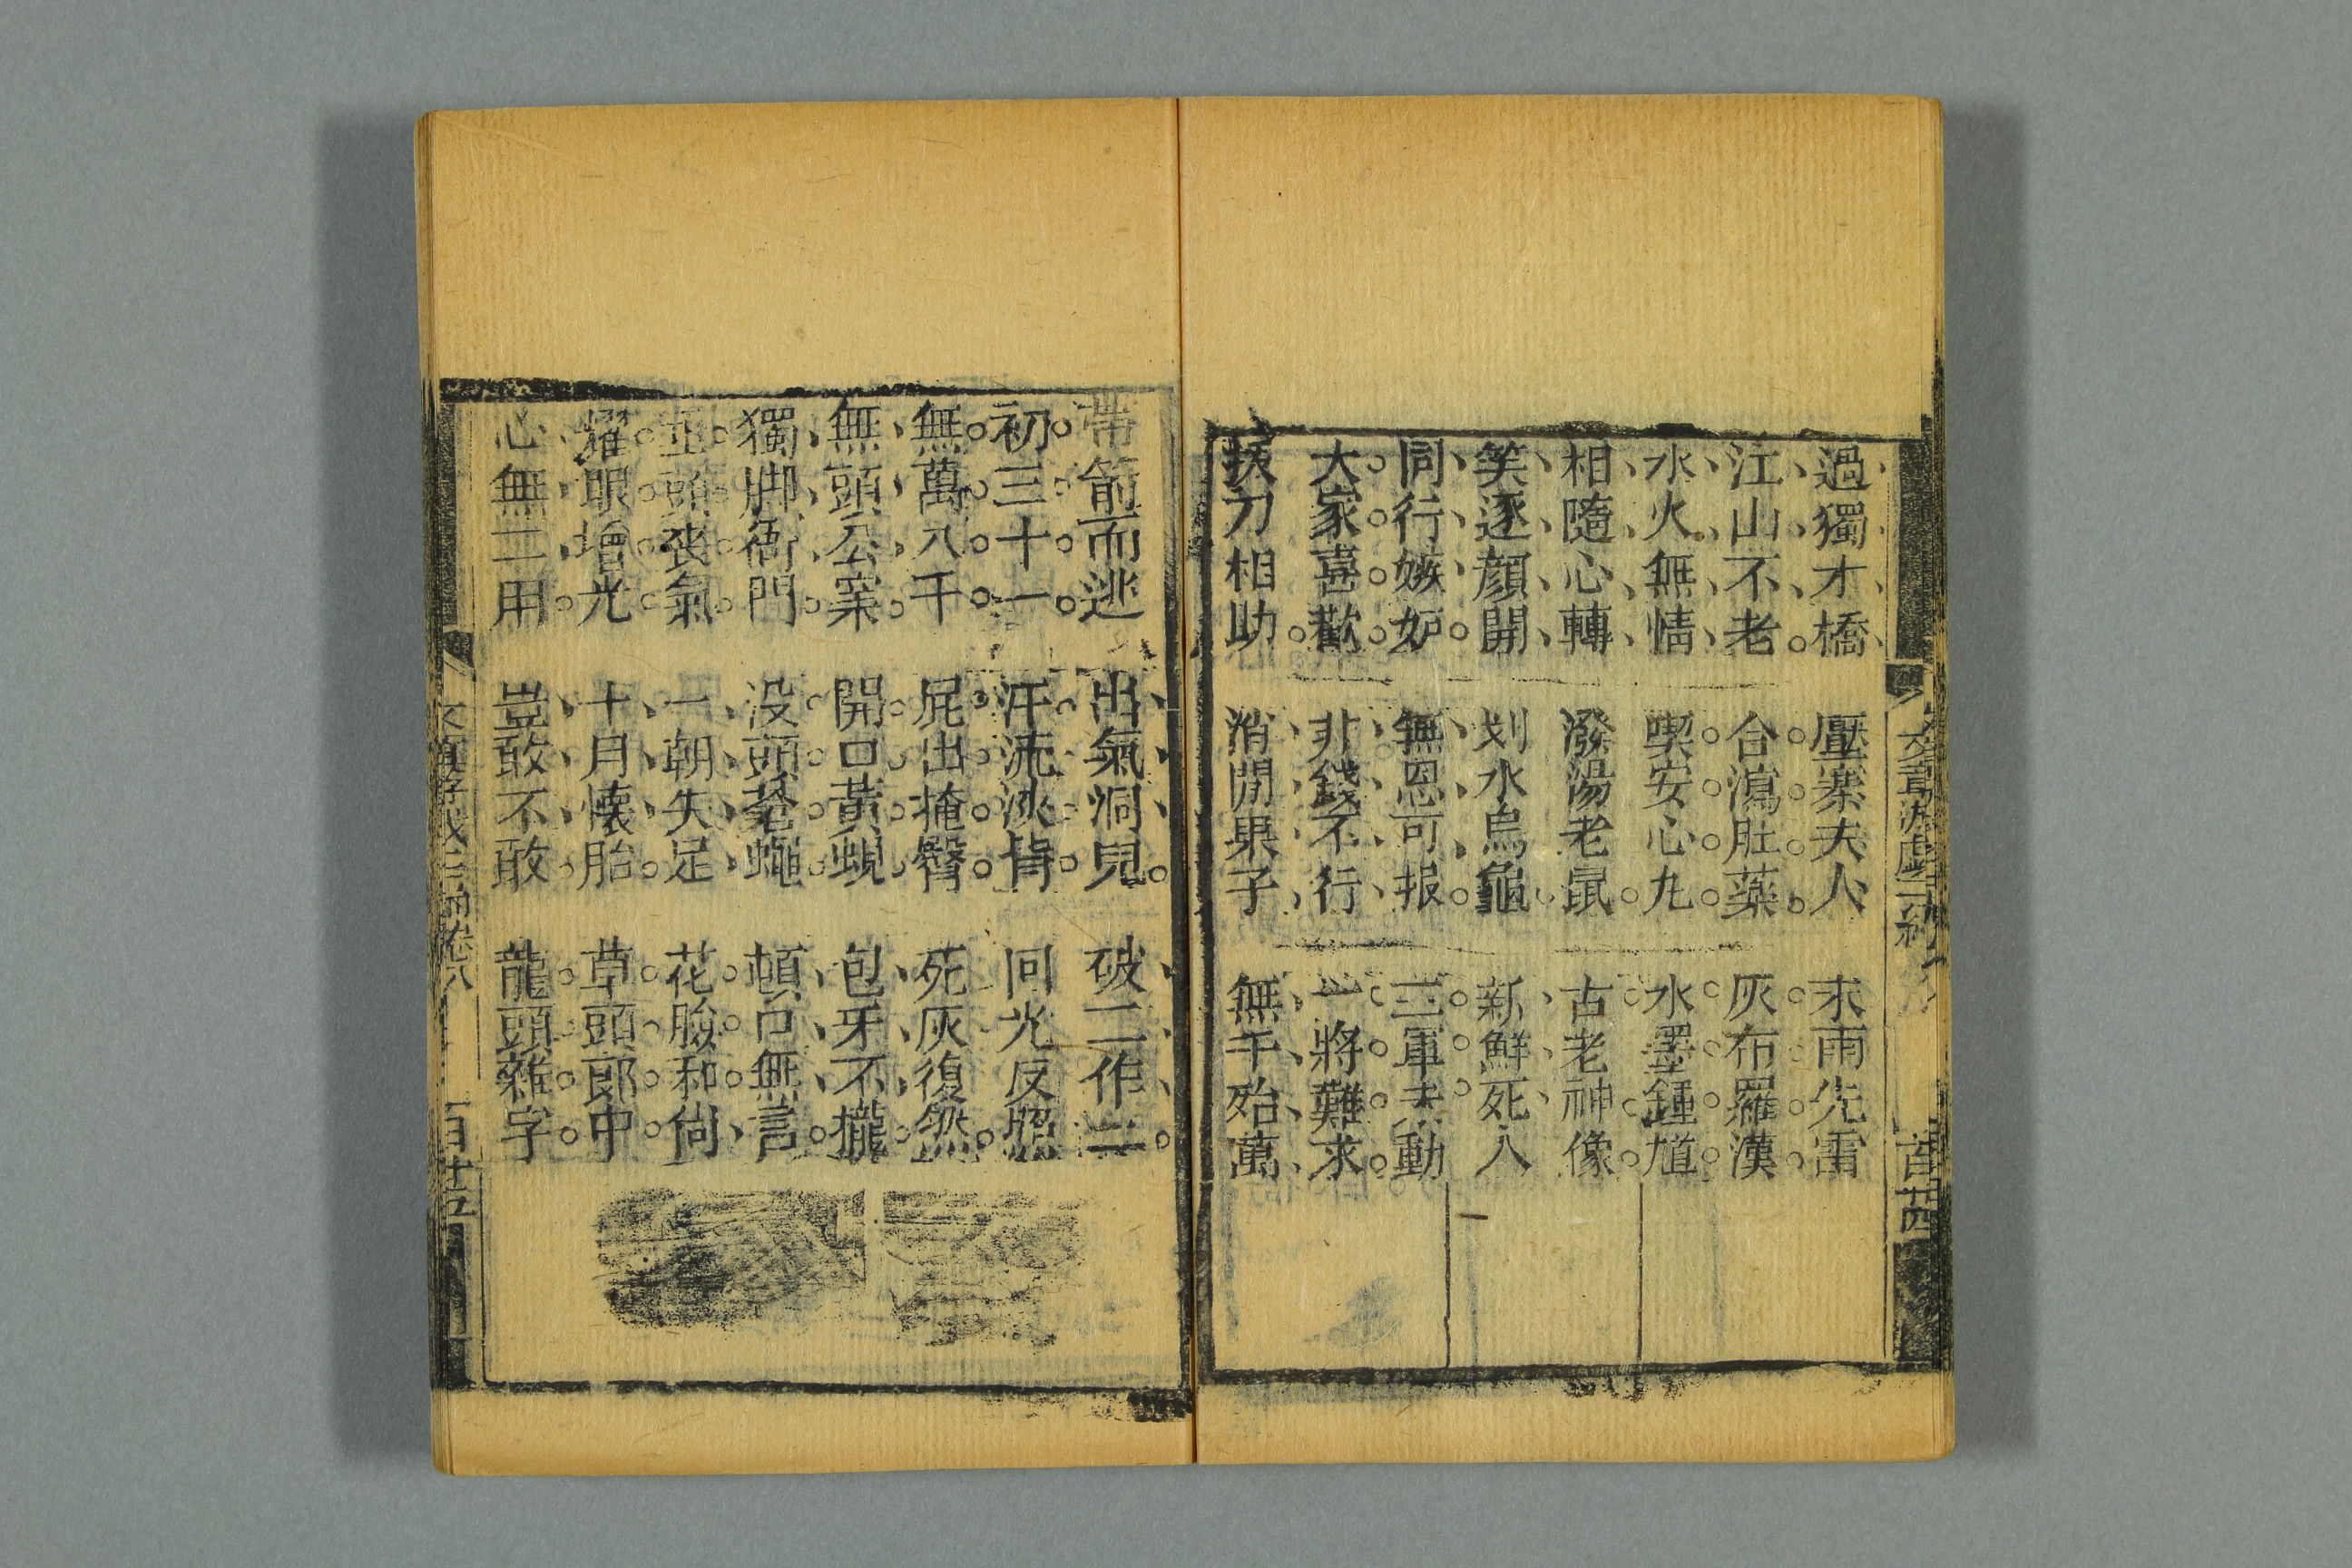 過獨才橋　壓寨夫人　求雨先雷
江山不老　合瀉肚藥　灰布羅漢
水火無情　喫安心丸　水墨鍾馗
相隨心轉　潑湯老鼠　古老神像
笑逐顔開　刬水烏龜　新鮮死人
同行嫉妒　無恩可报　三軍未動
大家喜歡　非錢不行　一將難求
拔刀相助　消閒果子　無千殆萬
帶箭而逃　出氣洞兒　破二作三
初三十一　汗流浹背　回光反照
無萬八千　屁出掩臀　死灰復燃
無頭公案　開口黃蜆　包牙不攏
獨脚衙門　没頭蒼蠅　頓口無言
垂頭喪氣　一朝失足　花臉和尙
耀眼增光　十月懐胎　草頭郎中
心無二用　豈敢不敢　龍頭雜字